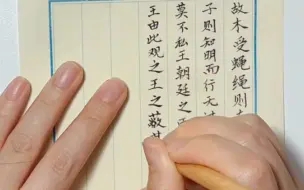 故木受蝇绳则
子则知明而行无
莫不私王朝廷之
王由此观之王之蔽